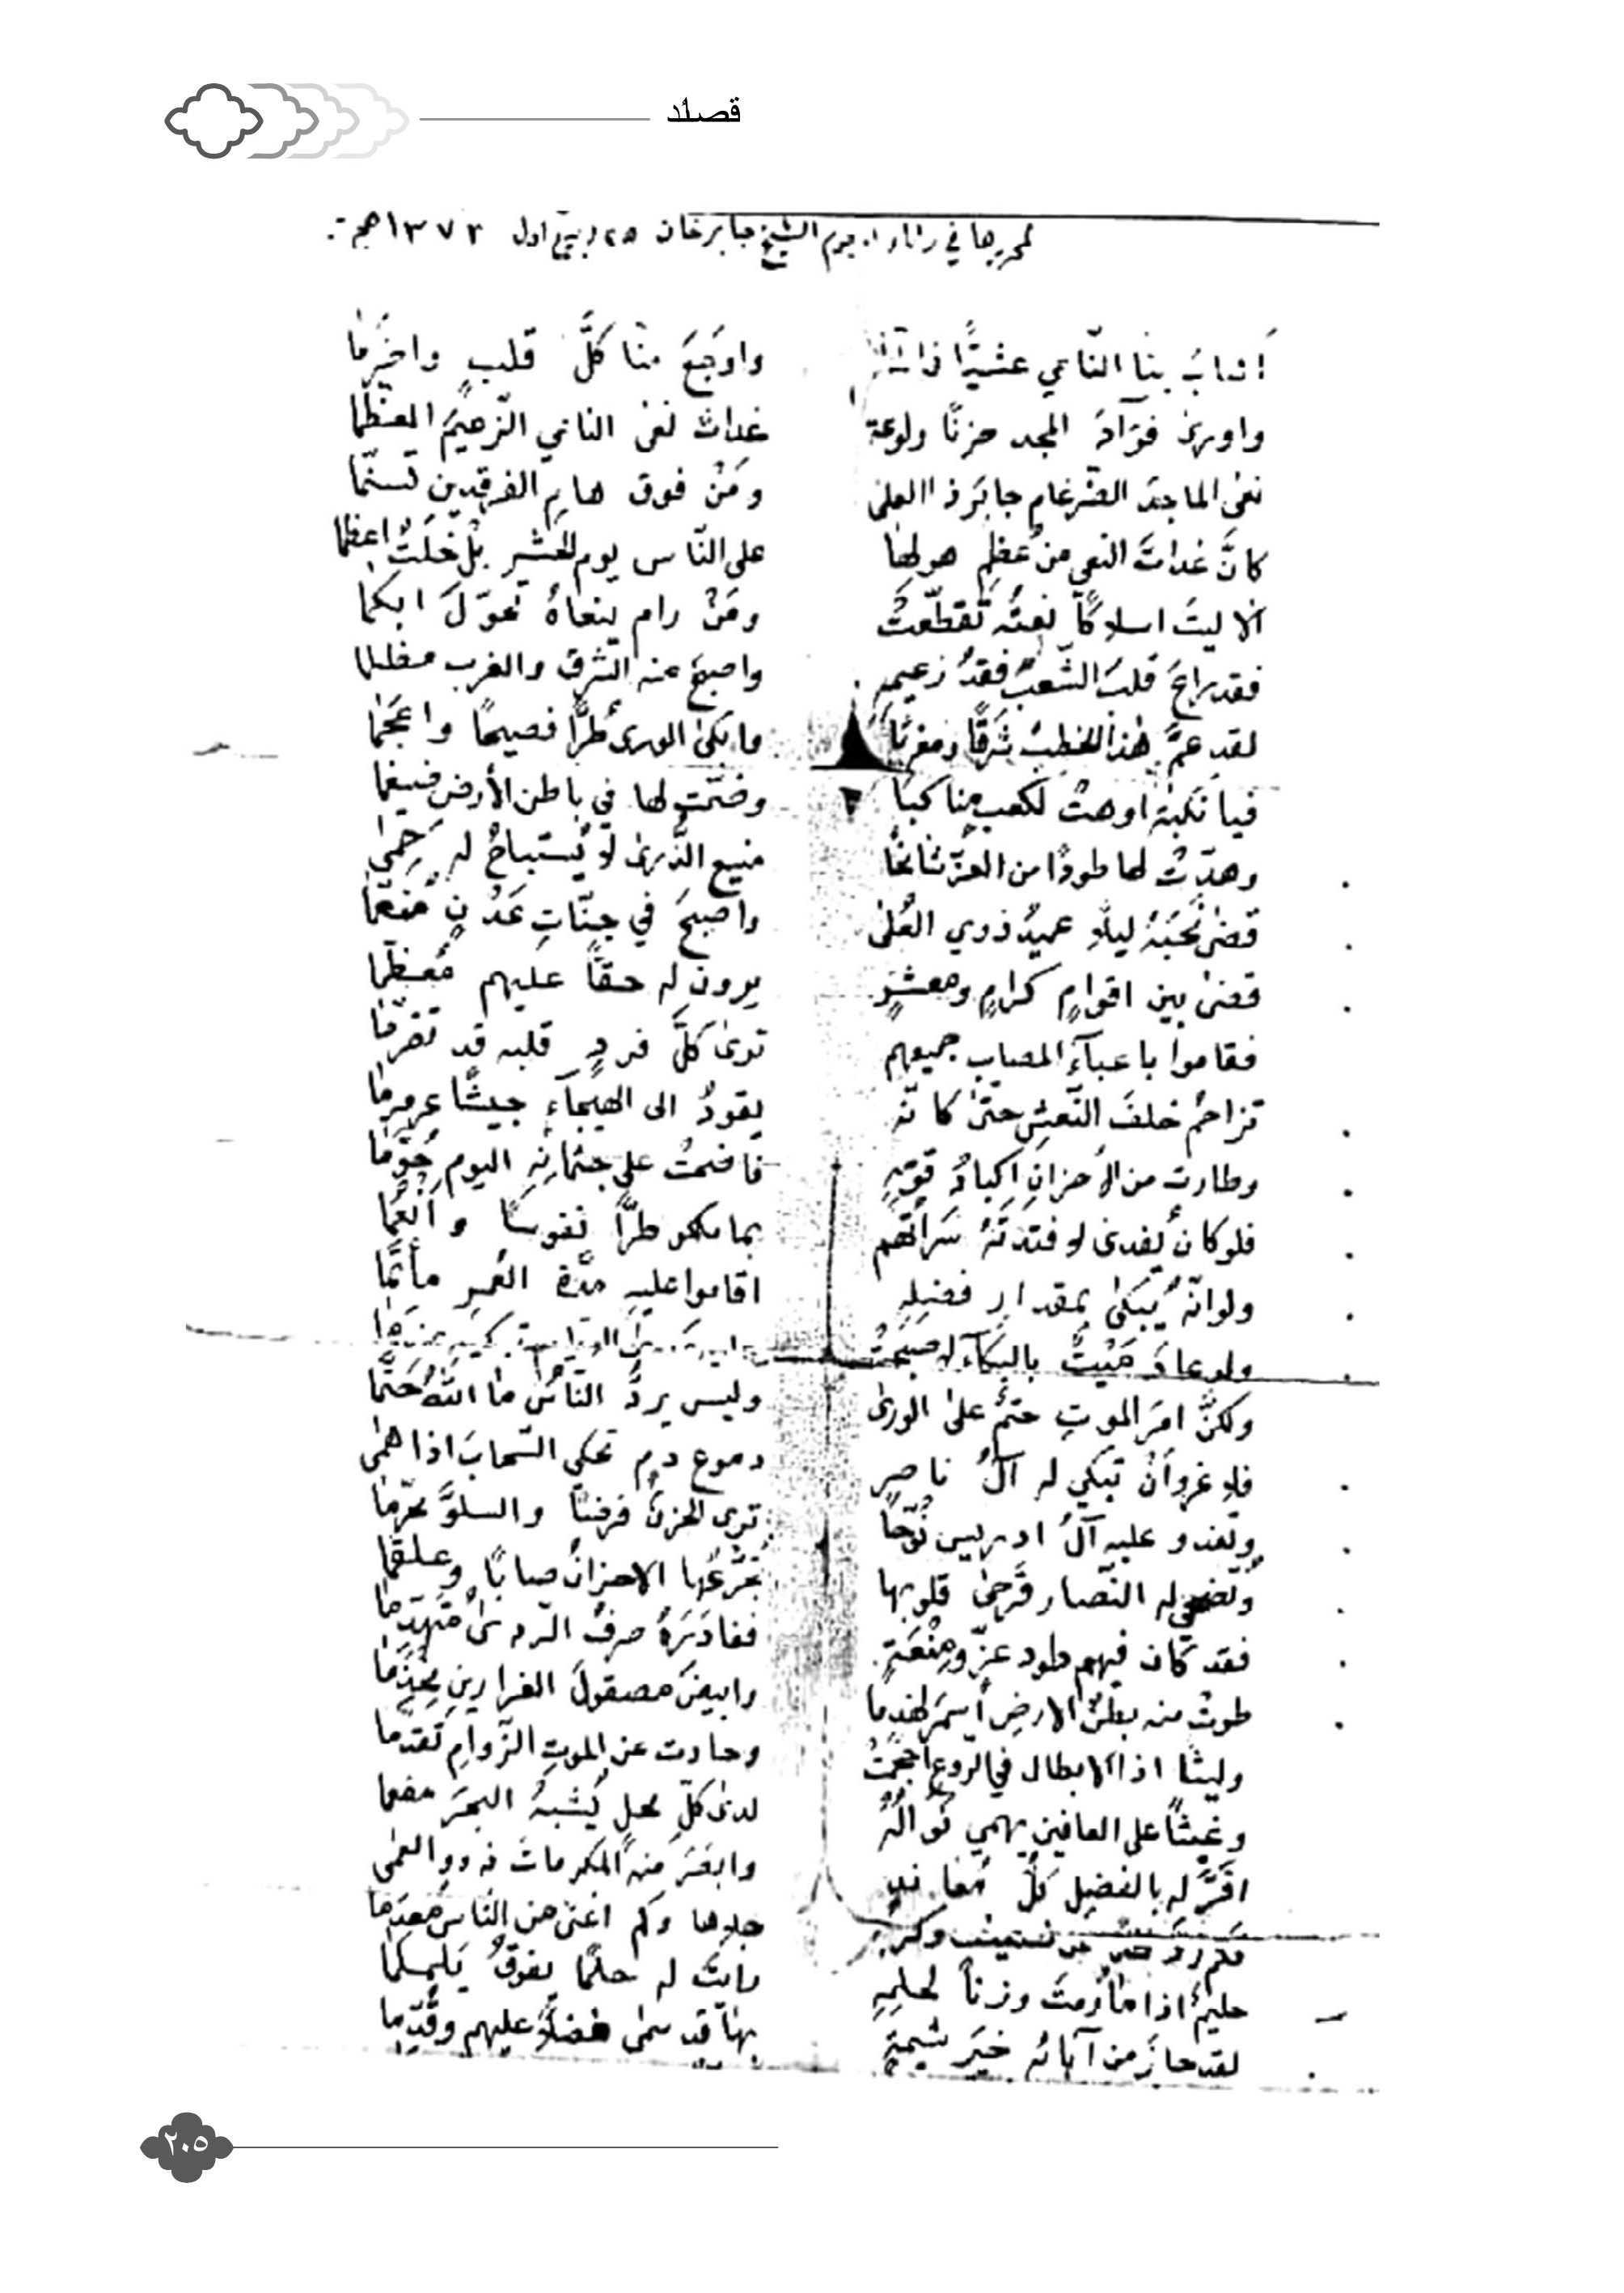 قصائد
لمحررها في رثاء المرحوم الشيخ جابر خان ٢٥ ربيع اول ١٣٧٣ هج
أهاب بنا النّاعي عشيًّا واوجَعَ منّا كلَّ قلبٍ واضرما
واورى فؤآدَ المجد حزنًا ولوعة غداتَ نعى الناعي الزّعيمَ المعظّما
نعى الماجدَ الضّرغام جابرَ ذا العلى ومَنْ فوق هامِ الفرقدين تسنّما
كانَّ غداتَ النعي من عُظمِ هولها على النّاس يوم الحشرِ بلْ خلتُ اعظما
ألا ليتَ اسلاكًا نعتهُ تقطّعتْ ومَنْ رام ينعاهُ تحوّلَ ابكما
فقد راعَ قلبَ الشّعبِ فقدُ زعيمهِ واصبحَ منه الشّرق والغرب مظلما
لقد عمَّ هذا الخطبُ شرقًا ومغربًا وابكى الورى طُرًّا فصيحًا واعجما
فيا نكبةً اوهتْ لكعبٍ مناكبا وضمّت لها في باطن الأرض ضيغما
وهدّتْ لها طودًا من العزّ شامخًا منيع الذُّرى لا يُستباحُ له حِمى
قضى نحبَهُ ليلًا عميدُ ذوي العُلى واصبحَ في جنّاتِ عَدْنٍ مُنعّما
قضى بين اقوامٍ كرامٍ ومعشرٍ يرون له حقًّا عليهم مُعظّما
فقاموا باعبآءِ المصاب جميعهم ترى كلَّ فردٍ قلبه قد تضرّما
تزاحمُ خلفَ النّعشِ حتّى كانّه يقودُ الى الهيجآءِ جيشًا عرمرما
وطارت من الأحزانِ اكبادُ قومهِ فاضحتْ على جثمانِهِ اليوم حُوّما
فلو كان يُفدى لافتدَتهُ سَراتُهم بما ملكوا طرًّا نفوسًا وأنعُما
ولو انّه يُبكى بمقدارِ فضلِهِ اقاموا عليهِ مدّةَ العُمرِ مأتمًا
ولو عادَ مَيْتٌ بالبكآءِ لاصبحتْ
ولكنَّ امرَ الموتِ حتمٌ على الورى وليس يردُّ النّاسُ ما اللهُ حَتّما
فلا غروَ أنْ تبكي له آلُ ناصرٍ دموع دمٍ تحكي السّحابَ اذا همى
وتغدو عليه آلُ ادريس نُوّحًا ترى الحزنَ فرضًا والسلوَّ محرّما
وتُضحي له النّصار قَرحى قلوبها تُجرّعُها الاحزانُ صابًا وعلقما
فقد كان فيهم طود عزٍّ ومِنْعَةٍ فغادَرَهُ صرفُ الرّدى متهدّما
طوتْ منه بطنُ الارضِ أسمرَ لهذما وابيضَ مصقولَ الغرارينِ مِخْذما
وليثًا اذا الابطال في الروعِ احجمتْ وحادت عن الموتِ الزّوامِ تقدّما
وغيثًا على العافينِ يهمي نَوالُهُ لدى كلّ محلٍ يُشبهُ البحرَ مفعما
اقرَّ له بالفضلِ كلُّ مُعاندٍ وابصَرَ منه المكرماتَ ذوو العمى
فكم ردَّ وكربةٍ جلاها وكم اغنى من النّاسِ مُعدما
حليمٌ اذا ما رُمتَ وزنًا لحلمِهِ رايتَ له حلمًا يفوقُ يلملما
لقد حازَ من آبائه خيرَ شيمةٍ بها قد سمى فضلًا عليهم وقُدّما
٢٠٥